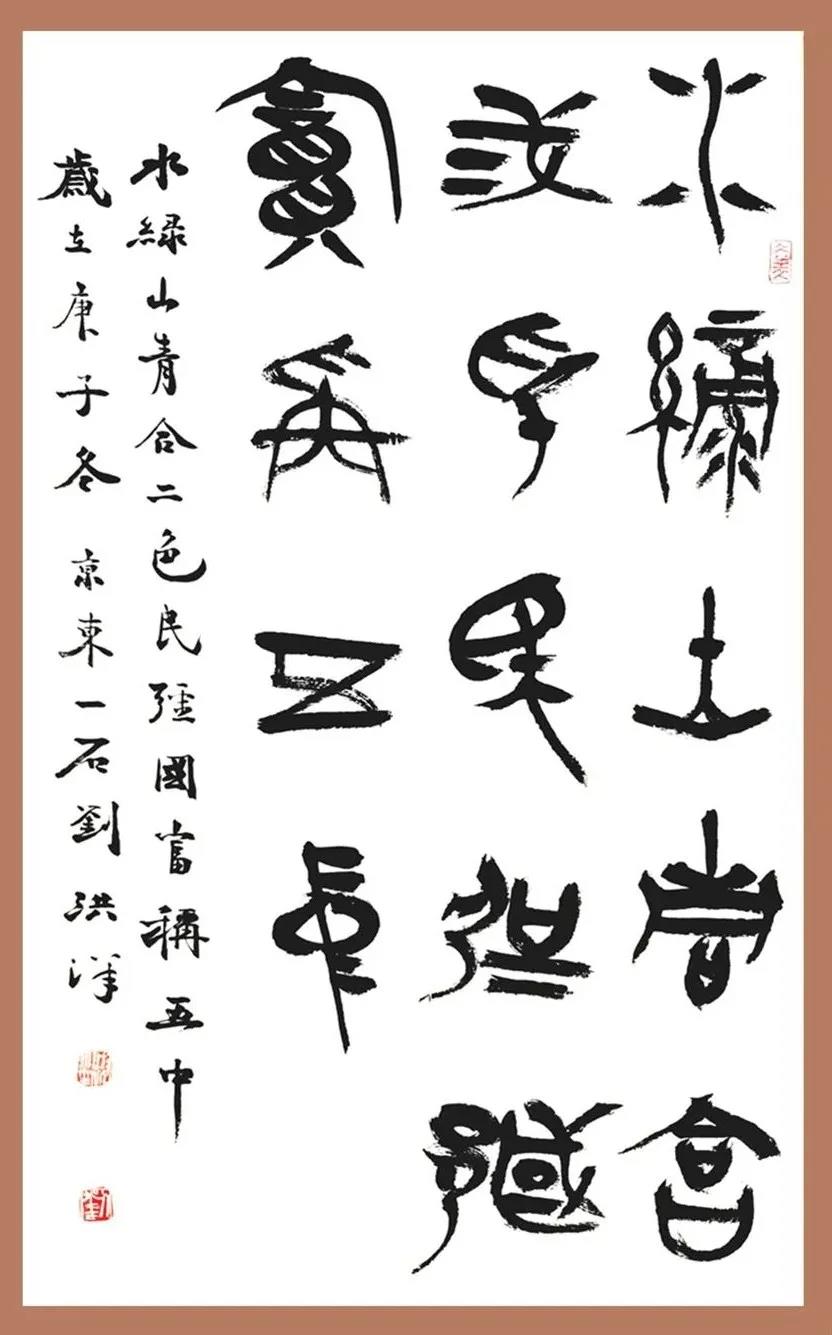 水綠山青合
弍色民彊國
富爯五中
水綠山青合二色民彊國富稱五中
歲在庚子冬 京東一石劉洪洋
劉